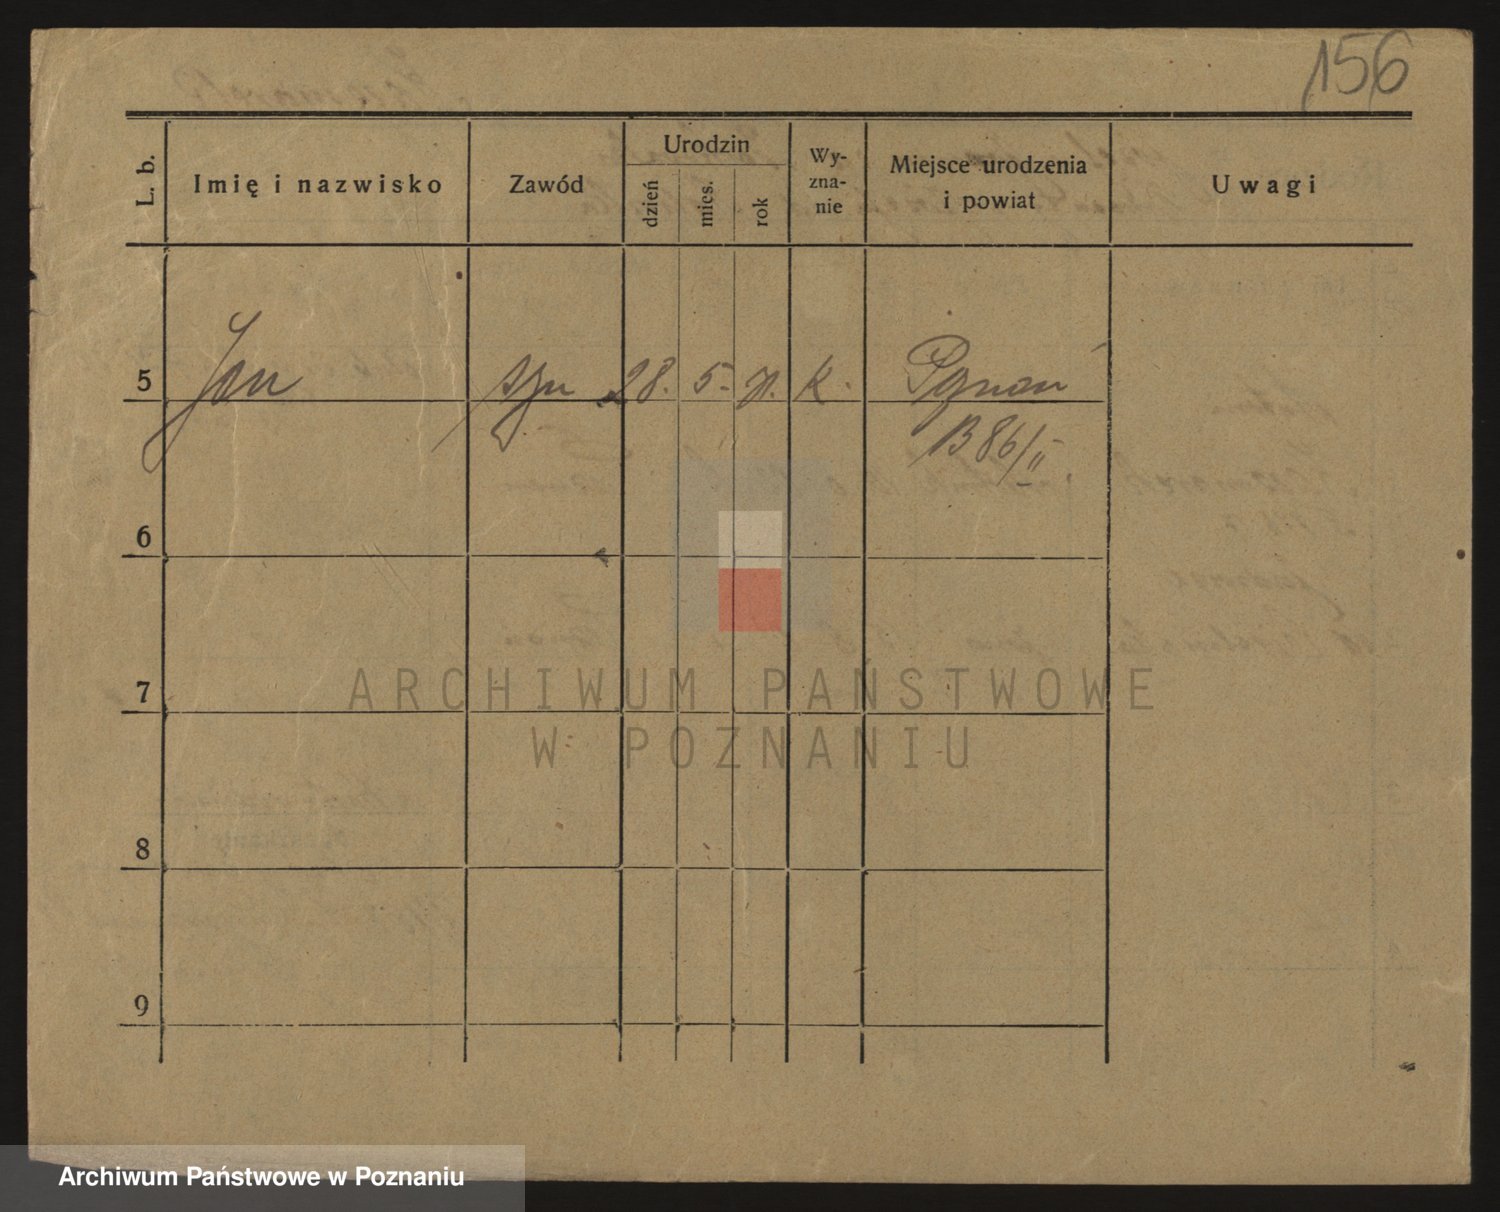 156
L. b.
Imię i nazwisko
Zawód
Urodzin
dzień
mies.
rok
Wy-
zna-
nie
Miejsce urodzenia
i powiat
Uwagi
5 Jan syn 28. 5. k. Poznań
B 86/II
6
7
8
9
ARCHIWUM PAŃSTWOWE
W POZNANIU
Archiwum Państwowe w Poznaniu